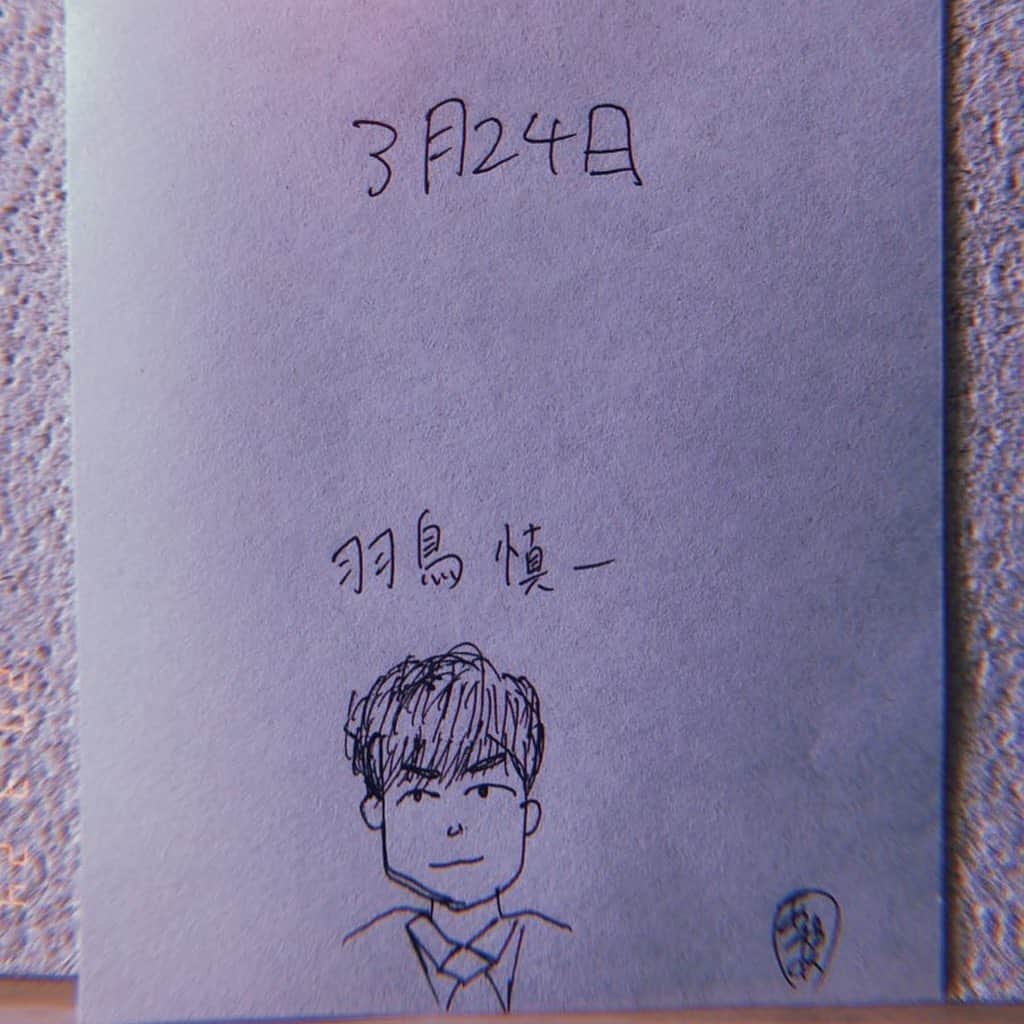 3月24日
羽鳥 慎一